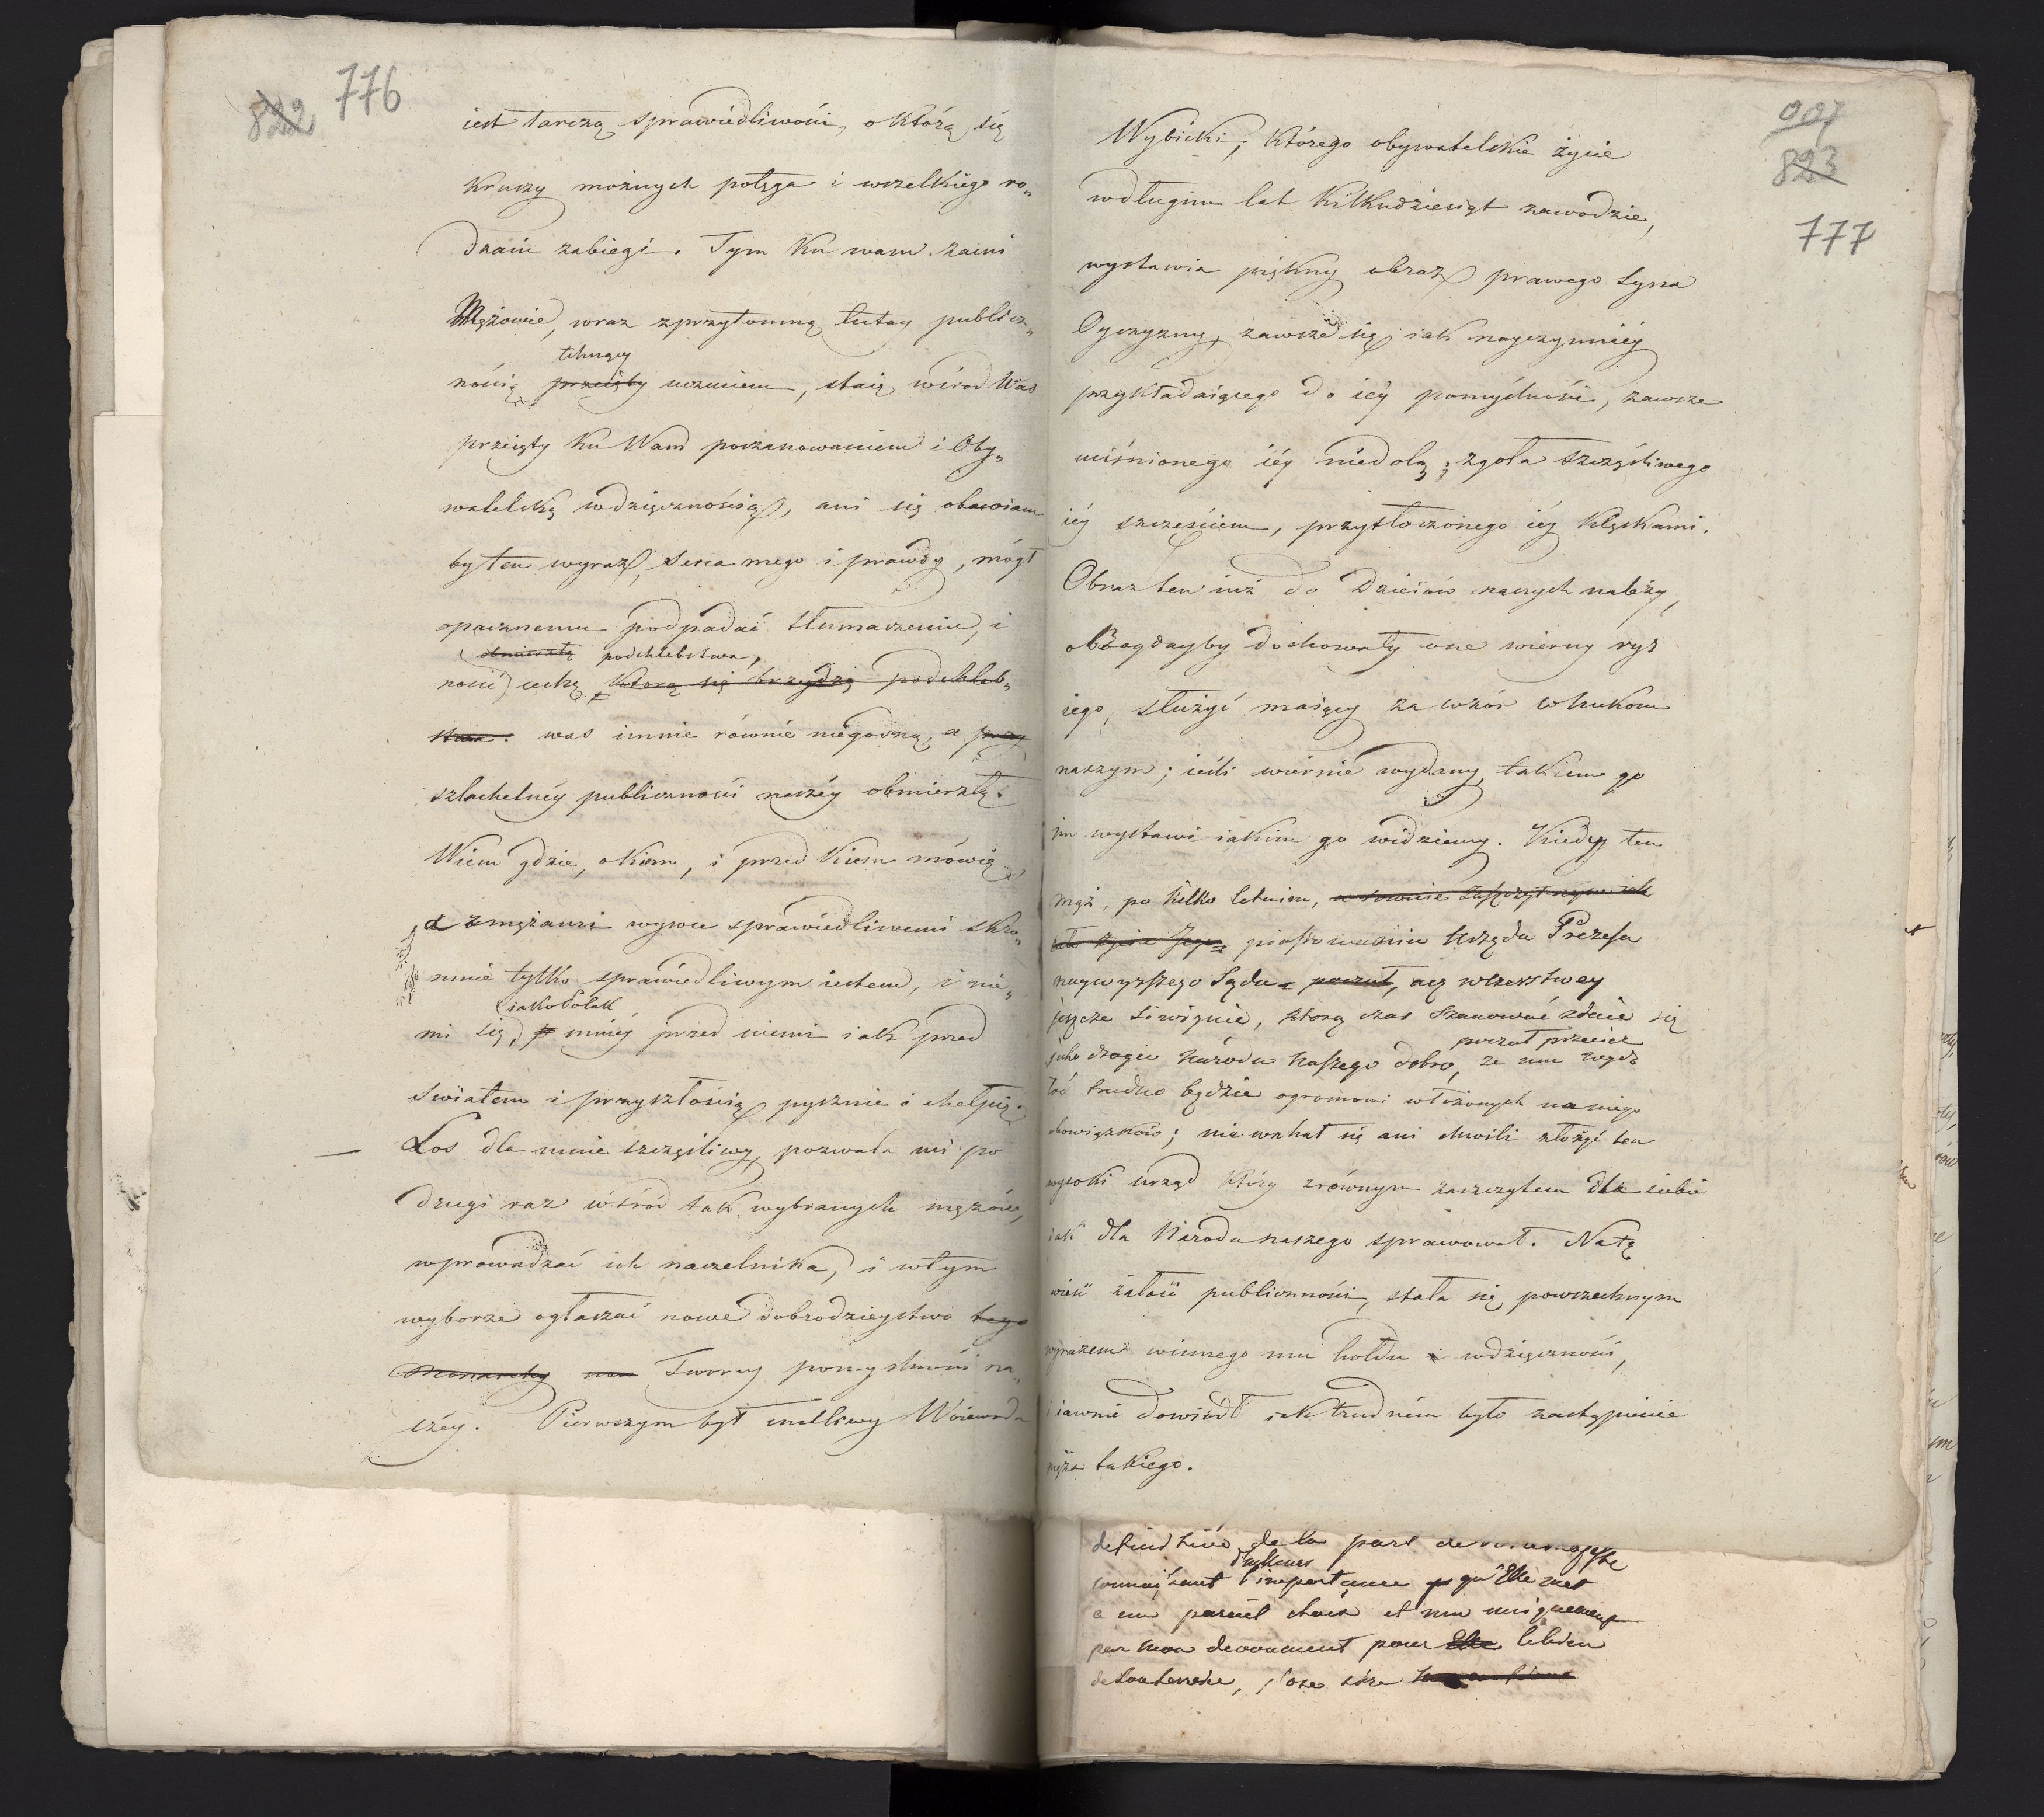 822 776
iest tarczą sprawiedliwości, o którą się
kruszy możnych potęga i wszelkiego ro„
dzaiu zabiegi. Tym ku wam zacni
Mężowie, wraz z przytomną tutay publicz„
tchnący
nością przeięty uczuciem, staię wśrod Was
przeięty ku Wam poszanowaniem i Oby„
watelską wdzięcznością, ani się obawiam
by ten wyraz, serca mego i prawdy, mógł
opacznemu podpadać tłumaczeniu, i
obmierzłą podchlebstwa,
nosić cechę którą się brzydzę podchleb„
stwa. was i mnie równie niegodną, a przez
szlachetnéy publiczności naszéy obmierzłą.
Wiem gdzie, o kim, i przed kiem mówię
a z mężami wyżéy sprawiedliwemi skro„
mnie tylko sprawiedliwym iestem, i nie„
iako Polak
mi się, mniéy przed niemi iak przed
światem i przyszłością pysznie i chełpię.
— Los dla mnie szczęśliwy pozwala mi po
drugi raz wśród tak wybranych mężów,
wprowadzać ich naczelnika, i w tym
wyborze ogłaszać nowe dobrodzieystwo tego
Monarchy nam Tworcy pomyslności na„
széy. Pierwszym był cnotliwy Woiewoda
823
777
Wybicki; którego obywatelskie życie
w długim lat kilkudziesiąt zawodzie,
wystawia piękny obraz prawego Syna
Oyczyzny, zawsze się iak nayczynniéy
przykładaiącego do iéy pomyślności, zawsze
uciśnionego iéy niedolą; zgoła szczęśliwego
iéy szczęściem, przytłoczonego iéy klęskami.
Obraz ten iuż do Dzieiów naszych należy,
obBogdayby dochowały one wierny rys
iego, służyć maiący za wzór wnukom
naszym; ieśli wiernie wydany, takiem go
im wystawi iakim go widziemy. Kiedy ten
mąż, po kilko letnim,
piastowaniu Urzędu Prezesa
naywyższego Sądu poczuł, acz w czerstwey
jeszcze siwiznie, którą czas Szanować zdaie się
poczuł przecież
jako drogie Narodu Naszego dobro, że mu zbyt
trudno będzie ogromowi włożonych na niego
obowiązków; nie wahał się ani chwili złożyć ten
wysoki urząd który z równym zaszczytem dla siebie
iak dla Narodu naszego sprawował. Na tę
wieść żałość publiczności, stała się powszechnym
wyrazem winnego mu hołdu i wdzięczności,
i iawnie dowiódł iak trudném było zastąpienie
męża takiego.
de la part de
d'ailleurs
connaissant l'importance qu'Elle met
a un pareil choix et mu uniquement
par mon devouement pour Elle
j'ose